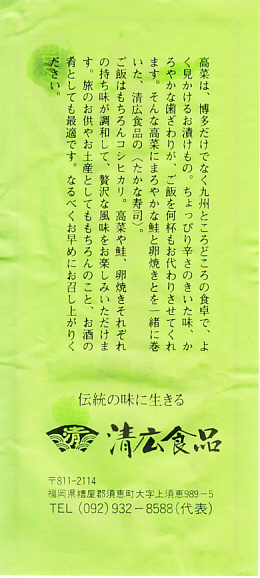 高菜は、博多だけでなく九州ところどころの食卓で、よ
く見かけるお漬けもの。ちょっぴり辛みのきいた味、か
ろやかな歯ざわりが、ご飯を何杯もお代わりさせてくれ
ます。そんな高菜にまろやかな鮭と卵焼きとを一緒に巻
いた、清広食品の〈たかな寿司〉。
ご飯はもちろんコシヒカリ。高菜や鮭、卵焼きそれぞれ
の持ち味が調和して、贅沢な風味をお楽しみいただけま
す。旅のお供やお土産としてももちろんのこと、お酒の
肴としても最適です。なるべくお早めにお召し上がりく
ださい。
伝統の味に生きる
清 清広食品
〒811-2114
福岡県糟屋郡須恵町大字上須恵989−5
TEL (092) 932−8588(代表)